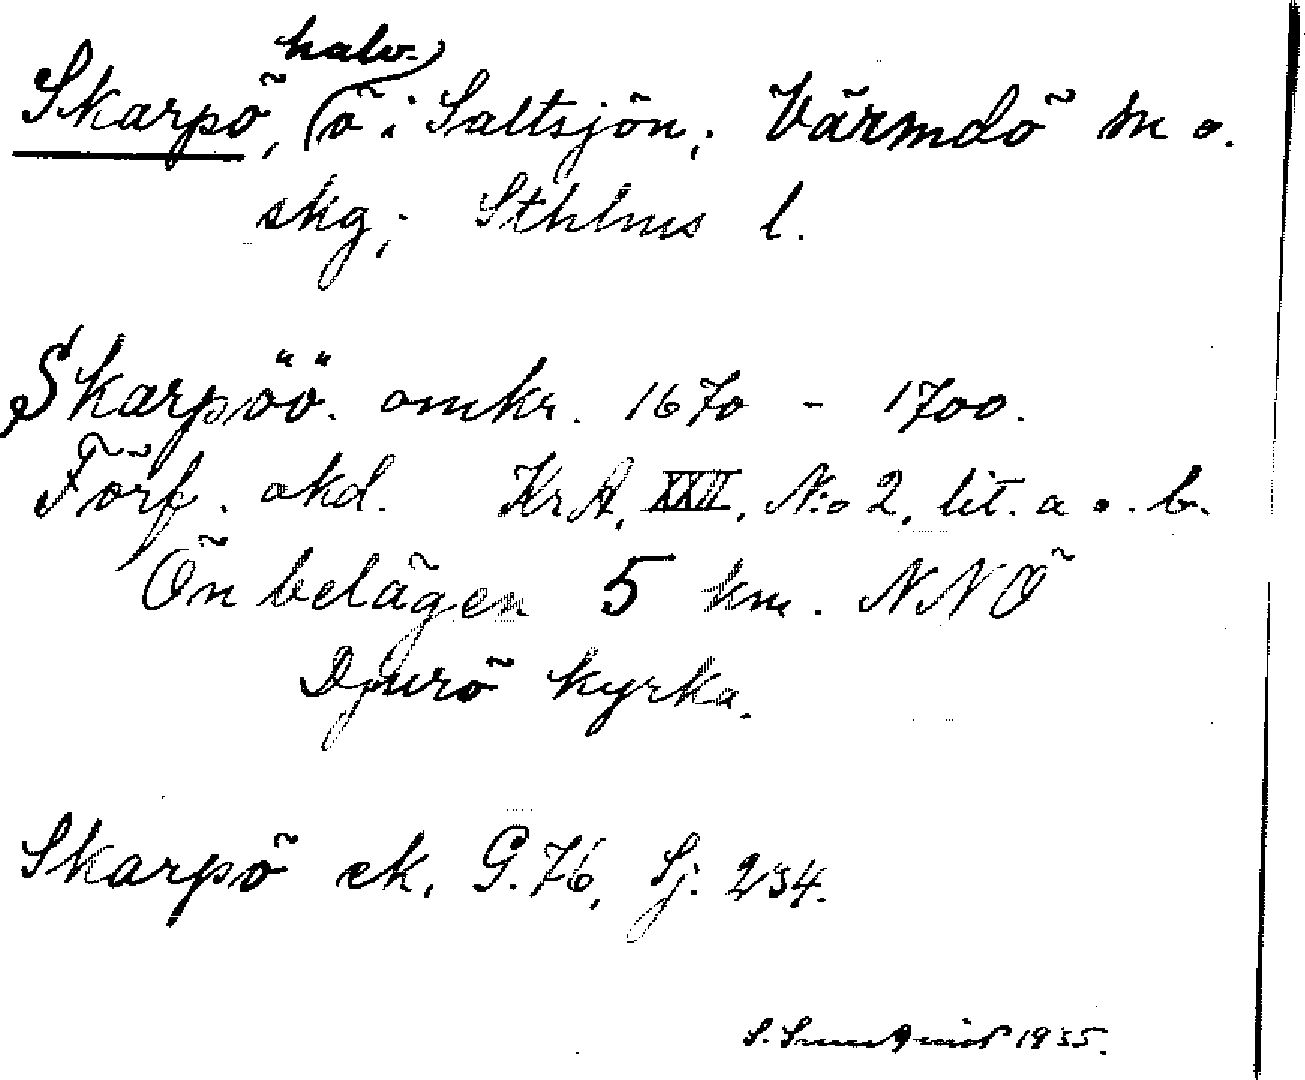 halv-
Skarpö, ö i Saltsjön; Värmdö m o.
skg; Sthlms l.
Skarpöö. omkr. 1670 - 1700.
Förf. okd. KrA, XXII, N:o 2, lit. a o. b.
Ön belägen 5 km. NNÖ
Djurö kyrka.
Skarpö ek. G. 76, Sj. 234.
S. 1935.